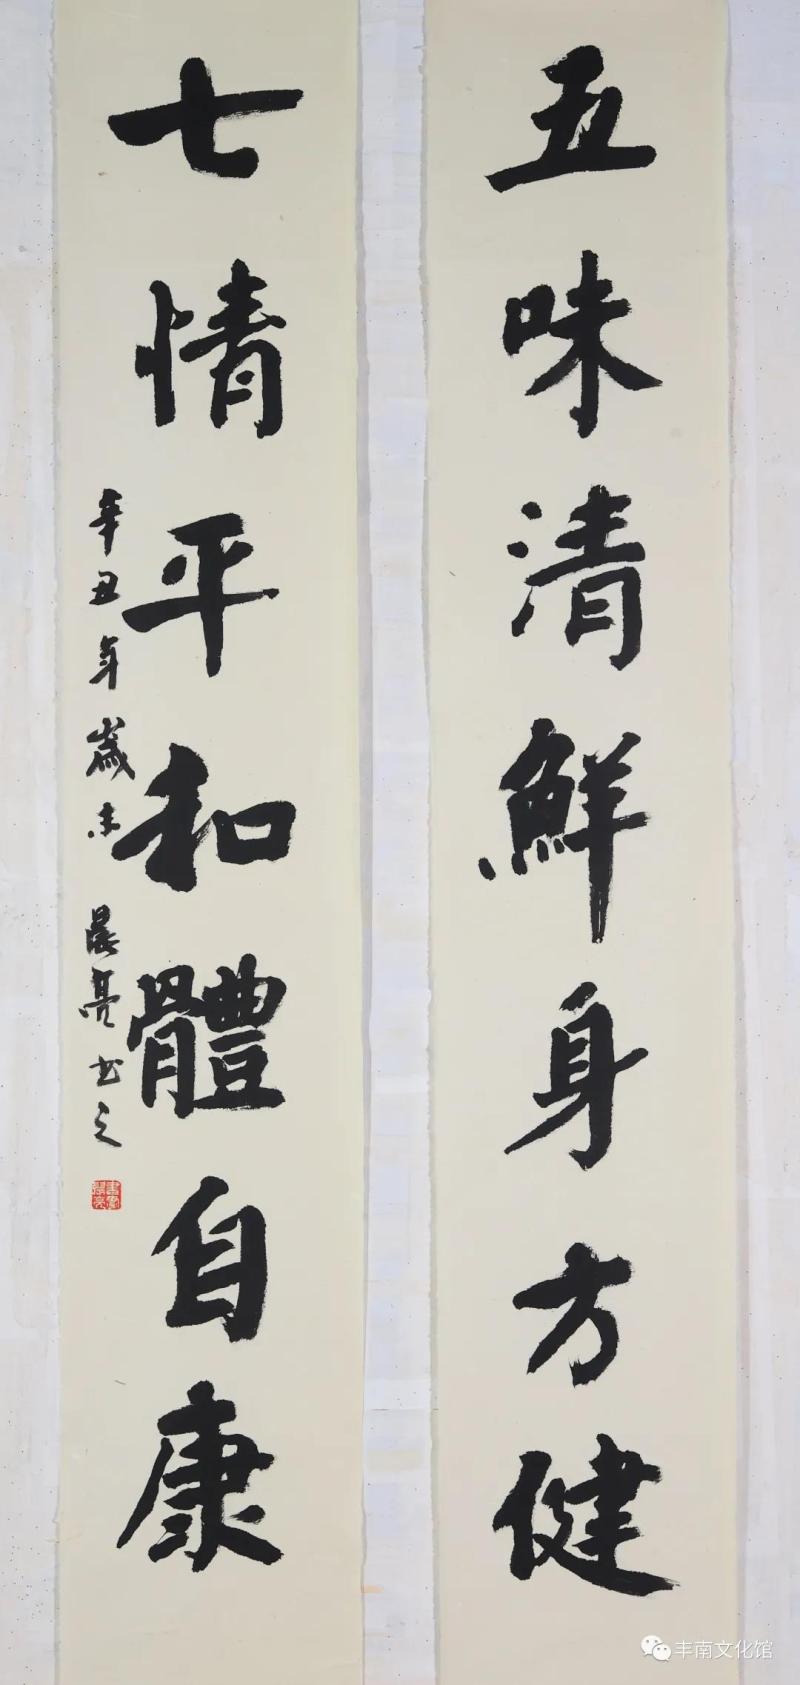 五味清鮮身方健
七情平和體自康
辛丑年歲末 晨亮书之
丰南文化馆